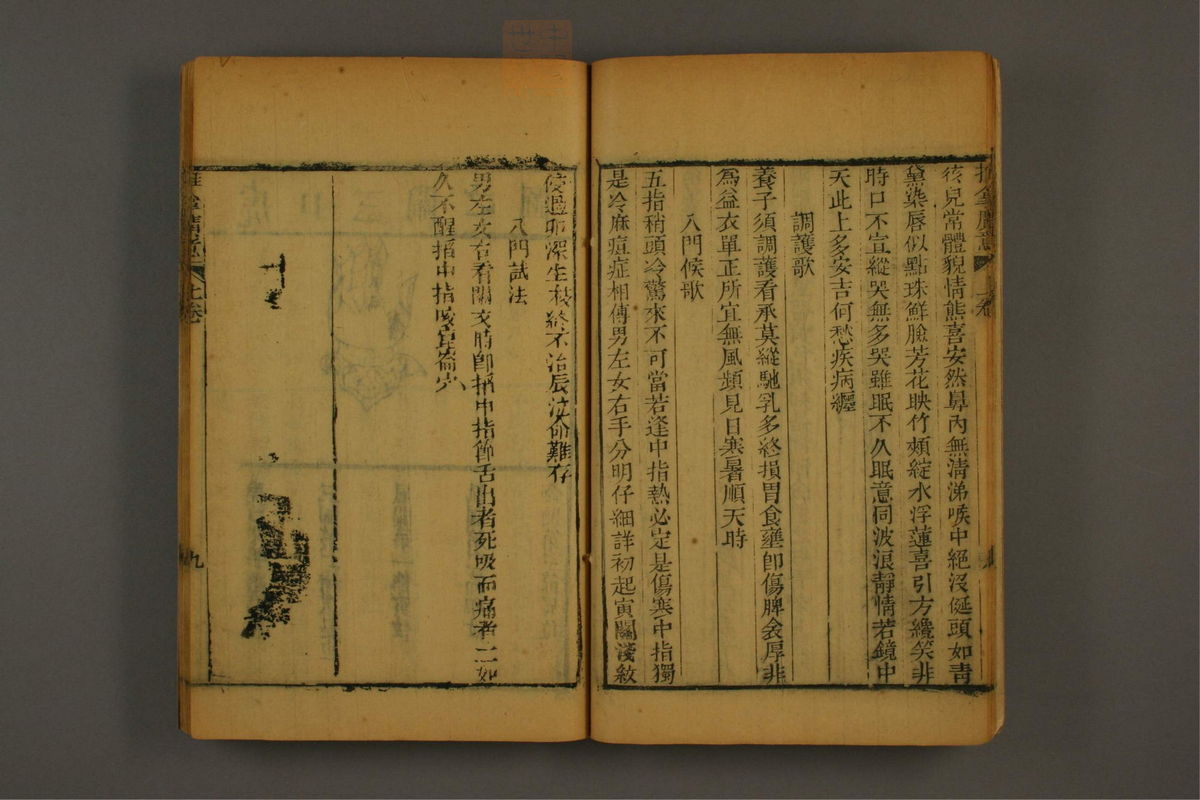 孩兒常體貌情態喜安然鼻內無清涕喉中絕沒涎頭如青
黛染唇似點珠鮮臉芳花映竹頰綻水浮蓮喜引方纔笑非
時口不豈縱哭無多哭雖眠不久眠意同波浪靜情若鏡中
天此上多安吉何愁疾病纏
調護歌
養子須調護看承莫縱馳乳多終損胃食壅即傷脾衾厚非
為益衣單正所宜無風頻見日寒暑順天時
八門候歌
五指稍頭冷驚來不可當若逢中指熱必定是傷寒中指獨
是冷麻痘症相傳男左女右手分明仔細詳初起寅關淺紋
侵過卯深生枝終不治辰位命難存
八門試法
男左女右看關交時即掐中指節舌出者死吸而痛者二如
久不醒掐中指及崑崙穴
上卷
九